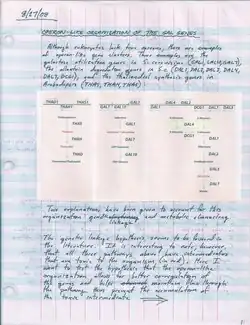 8/27/08
OPERON-LIKE ORGANIZATION OF THE GAL GENES
Although eukaryotes lack true operons, there are examples
of operon-like gene clusters. Three examples are the
galactose utilization genes in S. cerevisiae (GAL1, GAL10, GAL7),
the allantoin degradation genes in S.c. (DAL1, DAL2, DAL3, DAL4,
DAL7, DCG1), and the thalianol synthesis genes in
Arabidopsis (THAS, THAH, THAD)
THAD1 THAS1
GAL7 GAL10 GAL1
DAL4 DAL2
DCG1 DAL7 DAL3
THAS
THAH
THAD
GAL1
GAL7
GAL10
DAL4
DAL1
DAL2
DAL3
DAL7
Two explanations have been given to account for this
organization: and metabolic channeling
linkage
The genetic linkage hypothesis seems to be favored in
the literature. It is interesting to note, however,
that all three pathways above have intermediates
that are toxic to the organism (in red). Here I
want to test the hypothesis that the operon-like
organization allows for better coregulation of
the genes and helps maintain flux through
the pathway, thus prevent the accumulation of
the toxic intermediate